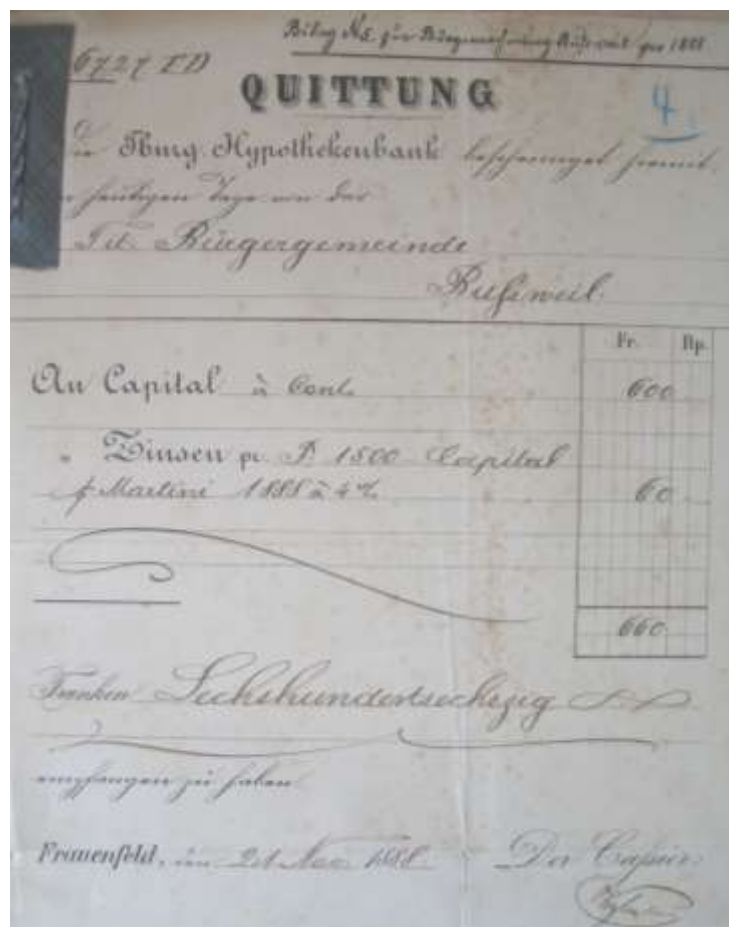 Beleg No 5 für Bürgerrechnung Bußweil per 1888
6727 ED
QUITTUNG
4.
Die Thurg. Hypothekenbank bescheinigt hiermit
heutigen Tage von der
Tit. Bürgergemeinde
Bußweil.
Fr. Rp.
An Capital à Conto 600
" Zinsen pr. Fr. 1500 Capital
p. Martini 1888 à 4 % 60
660
Franken Sechshundertsechszig
empfangen zu haben
Frauenfeld, den 21 Nov. 1888 Der Cassier: